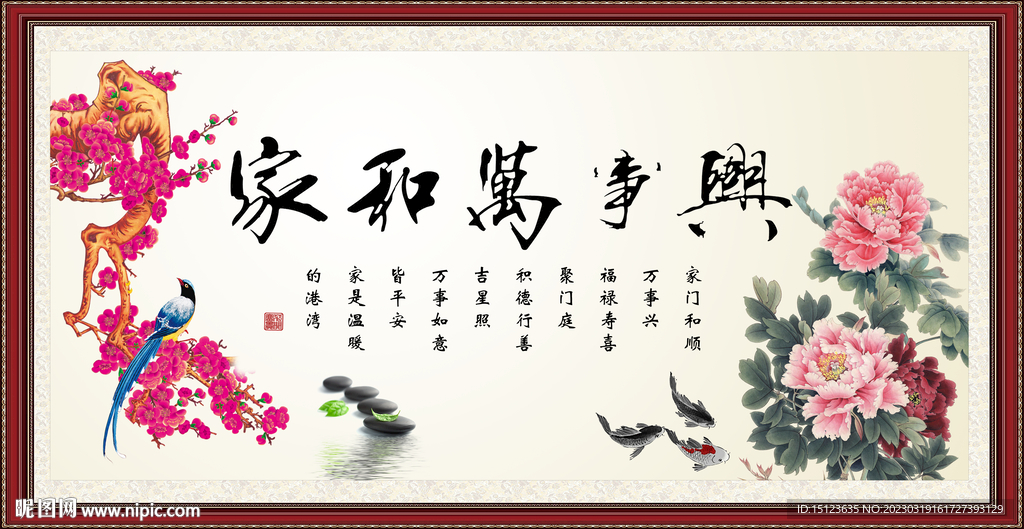 家和萬事興
家门和顺
万事兴
福禄寿喜
聚门庭
积德行善
吉星照
万事如意
皆平安
家是温暖
的港湾
昵图网 www.nipic.com
ID:15123635 NO:20230319161727393129